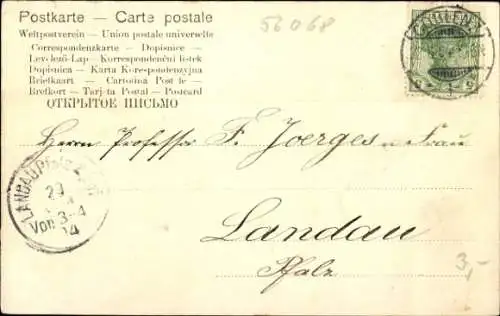 Postkarte — Carte postale
Weltpostverein — Union postale universelle
Correspondenzkarte — Dopisnice —
Levelező-Lap — Korrespondenční lístek
Dopisnica — Karta Korespondencyjna
Briefkaart — Cartolina Postale —
Brefkort — Tarjeta Postal — Postcard
ОТКРЫТОЕ ПИСЬМО
56068
Herrn Professor F. Joerges u. Frau
LANDAU PFALZ
Von 3-4
Landau
Pfalz
3,-